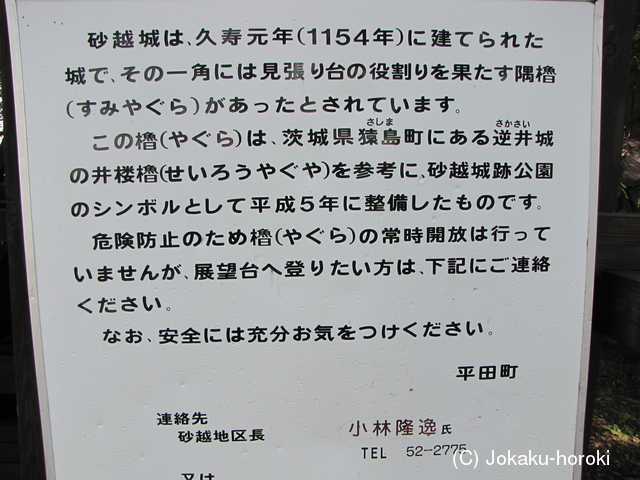 砂越城は、久寿元年(1154年)に建てられた
城で、その一角には見張り台の役割りを果たす隅櫓
(すみやぐら)があったとされています。
さしま さかさい
この櫓(やぐら)は、茨城県猿島町にある逆井城
の井楼櫓(せいろうやぐや)を参考に、砂越城跡公園
のシンボルとして平成5年に整備したものです。
危険防止のため櫓(やぐら)の常時開放は行って
いませんが、展望台へ登りたい方は、下記にご連絡
ください。
なお、安全には充分お気をつけください。
平田町
連絡先
砂越地区長 小林隆逸氏
TEL 52-2775
又は
(C) Jokaku-horoki